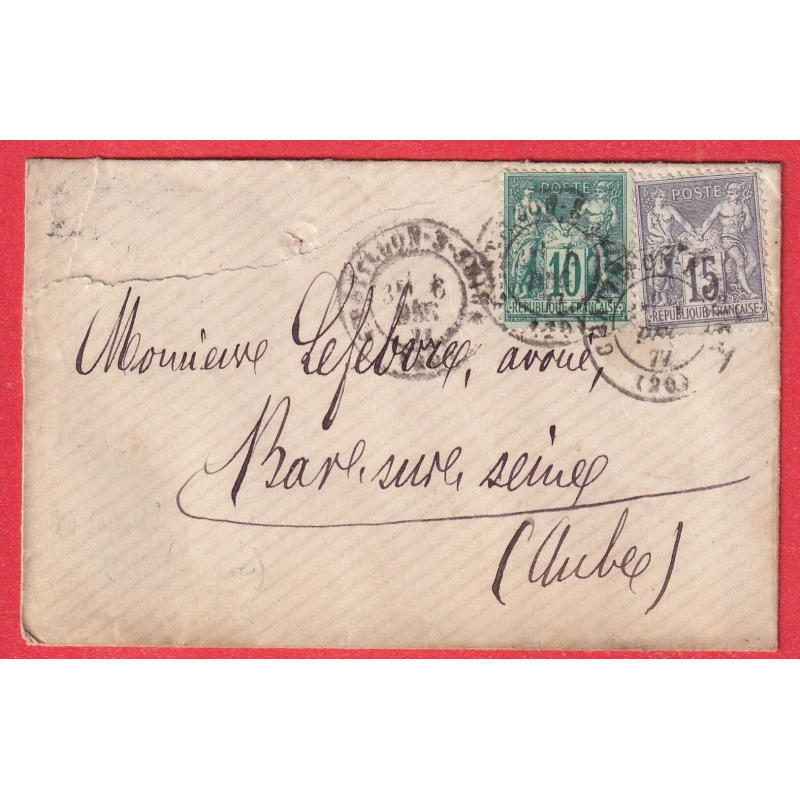 POSTE
10
REPUBLIQUE FRANÇAISE
POSTE
15
REPUBLIQUE FRANÇAISE
6
77
(20)
Monsieur Lefebvre, avoué,
Bar-sur-Seine
(Aube)